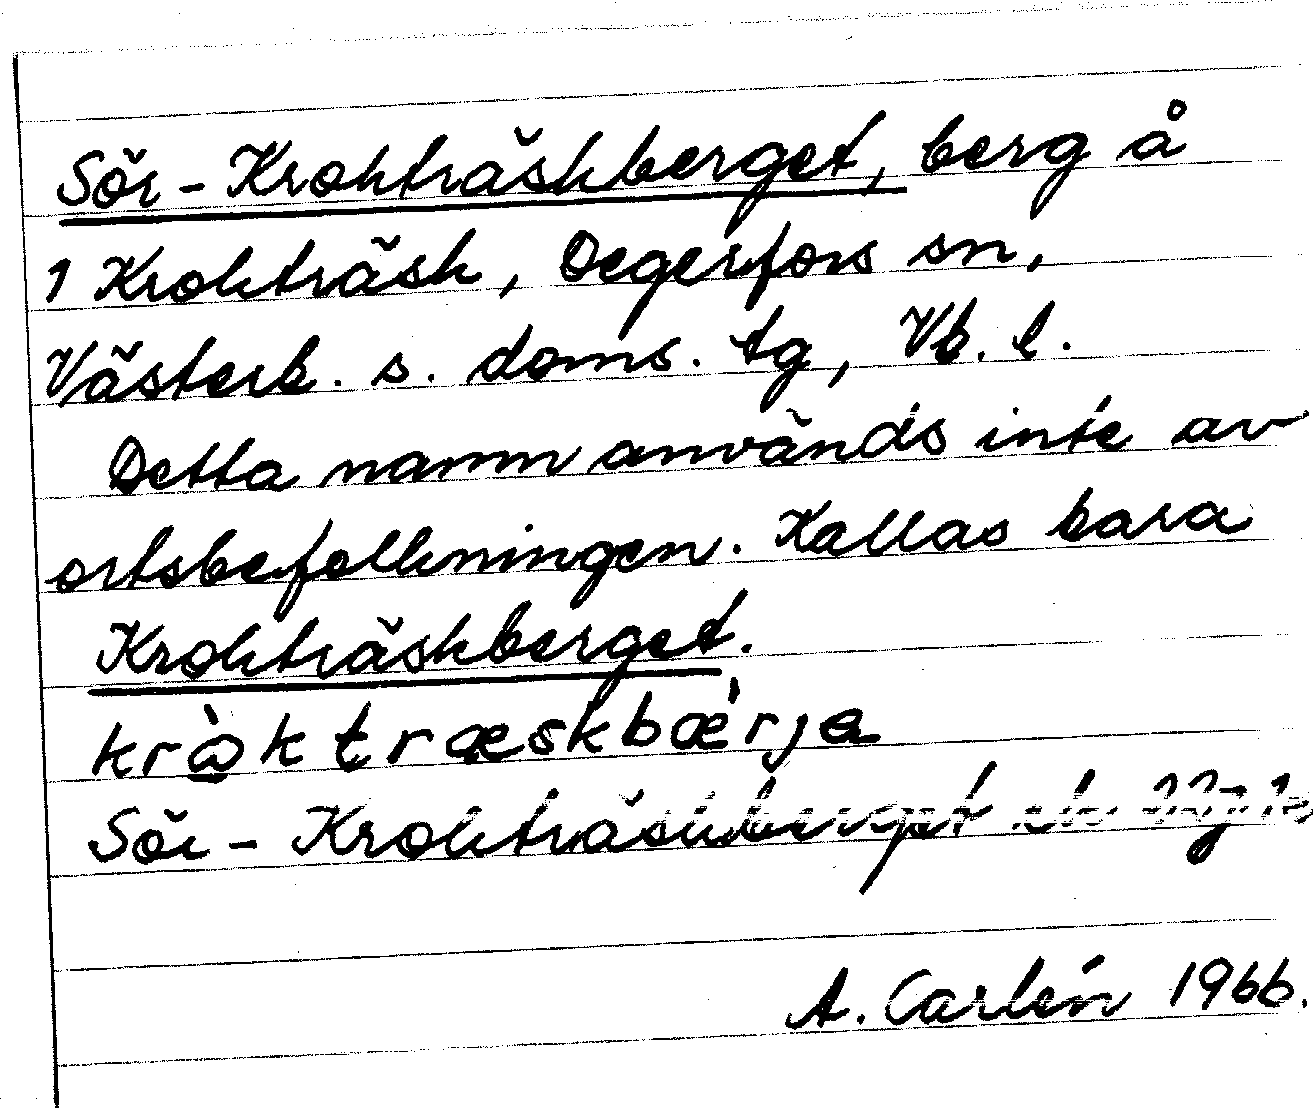 Sör-Krokträskberget, berg å
1 Krokträsk, Degerfors sn,
Västerb. s. doms. tg, Vb. l.
Detta namn används inte av
ortsbefolkningen. Kallas bara
Krokträskberget.
krὰktræskbæ̀rjа
Sör-Krokträskberget ek
A. Carlén 1966.